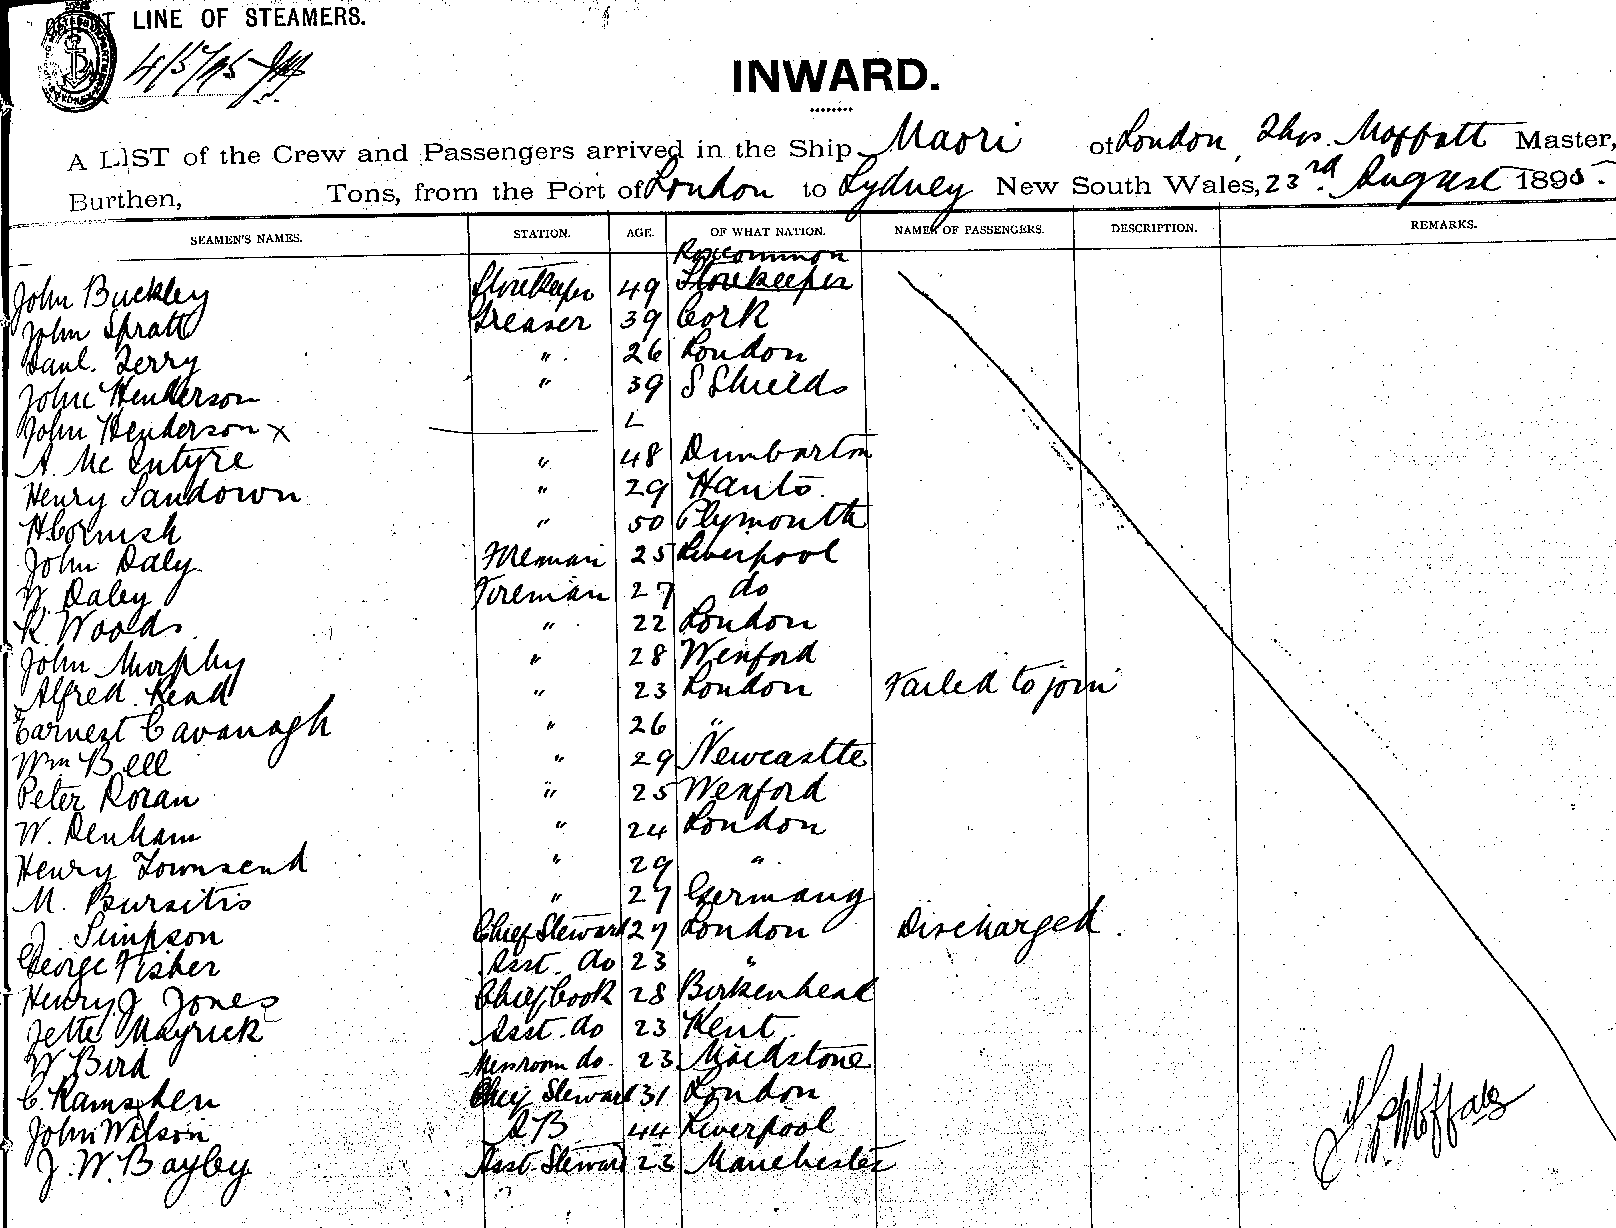 LINE OF STEAMERS.
4/5/95
INWARD.
A LIST of the Crew and Passengers arrived in the Ship Maori of London, Thos. Moffatt Master,
Burthen, Tons, from the Port of London to Sydney New South Wales, 23rd August 1895.
SEAMEN'S NAMES. STATION. AGE. OF WHAT NATION. NAMES OF PASSENGERS. DESCRIPTION. REMARKS.
Roscommon
John Buckley Storekeeper 49 Storekeeper
John Spratt Greaser 39 Cork
Danl. Terry " 26 London
John Henderson " 39 S Shields
John Henderson x
A. Mc Intyre " 48 Dumbarton
Henry Sandown " 29 Hants
H Cornish " 50 Plymouth
John Daly Fireman 25 Liverpool
W. Daley Foreman 27 do
R Woods " 22 London
John Murphy " 28 Wexford
Alfred Read " 23 London Failed to join
Earnest Cavanagh " 26 "
Wm Bell " 29 Newcastle
Peter Roran " 25 Wexford
W. Denham " 24 London
Henry Townsend " 29 "
M. Bursitis " 27 Germany
J. Simpson Chief Steward 27 London Discharged.
George Fisher Asst. do 23 "
Henry J Jones Chief Cook 28 Birkenhead
Mayrick Asst. do 23 Kent
W Bird Messroom do. 23 Maidstone
C. Ramsden Chief Steward 31 London
John Wilson AB 44 Liverpool
J. W. Bayley Asst. Steward 23 Manchester
Moffatt